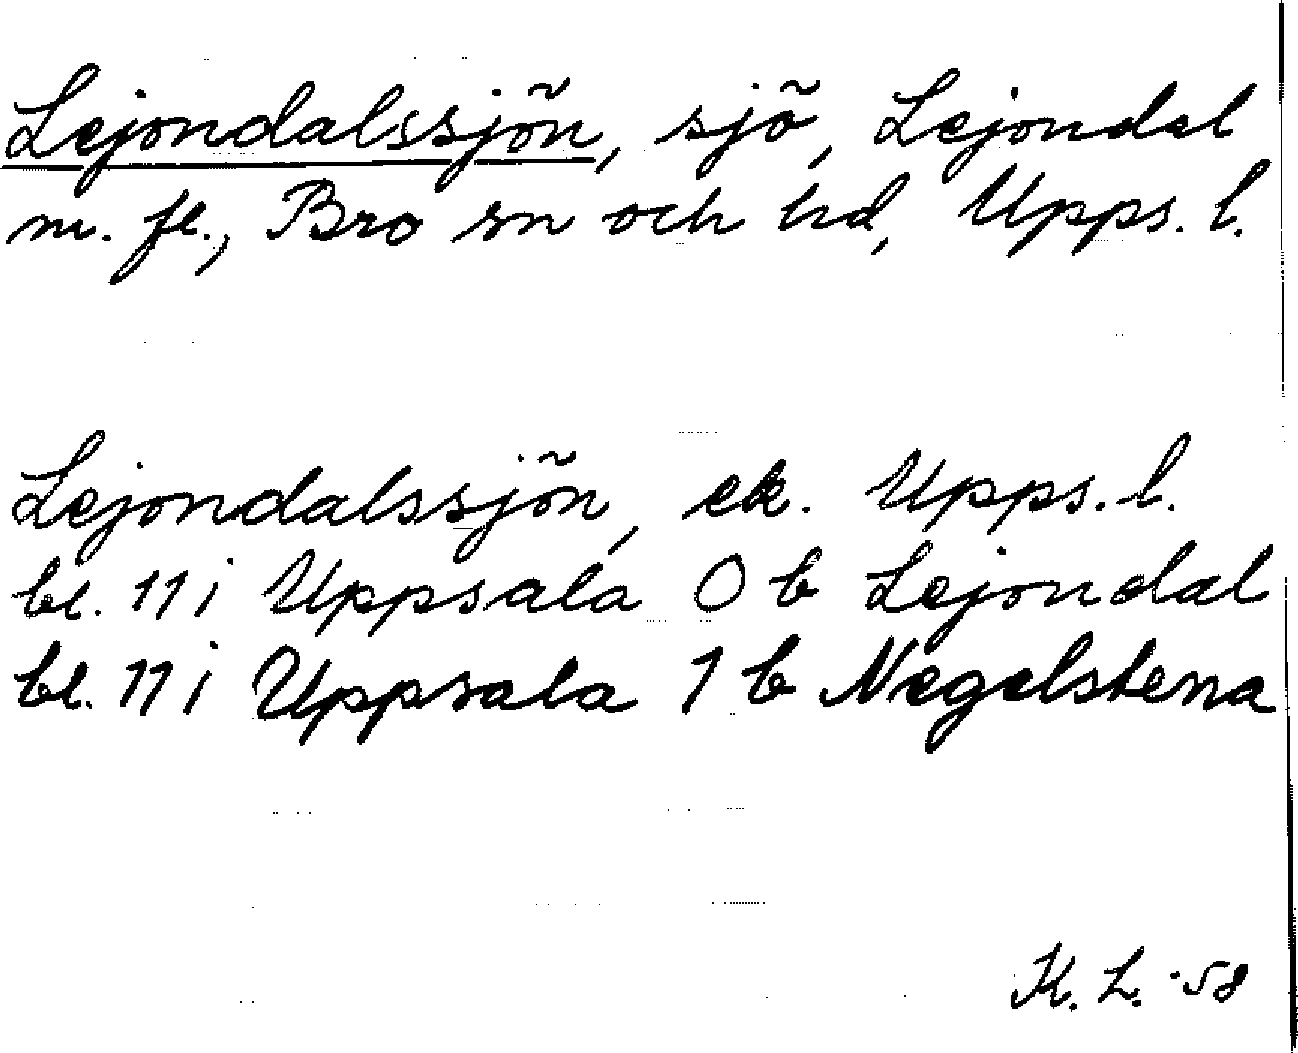 Lejondalssjön, sjö, Lejondal
m. fl., Bro sn och hd, Upps. l.
Lejondalssjön, ek. Upps. l.
bl. 11 i Uppsala 0 b Lejondal
bl. 11 i Uppsala 1 b Negelstena
K. L. -58